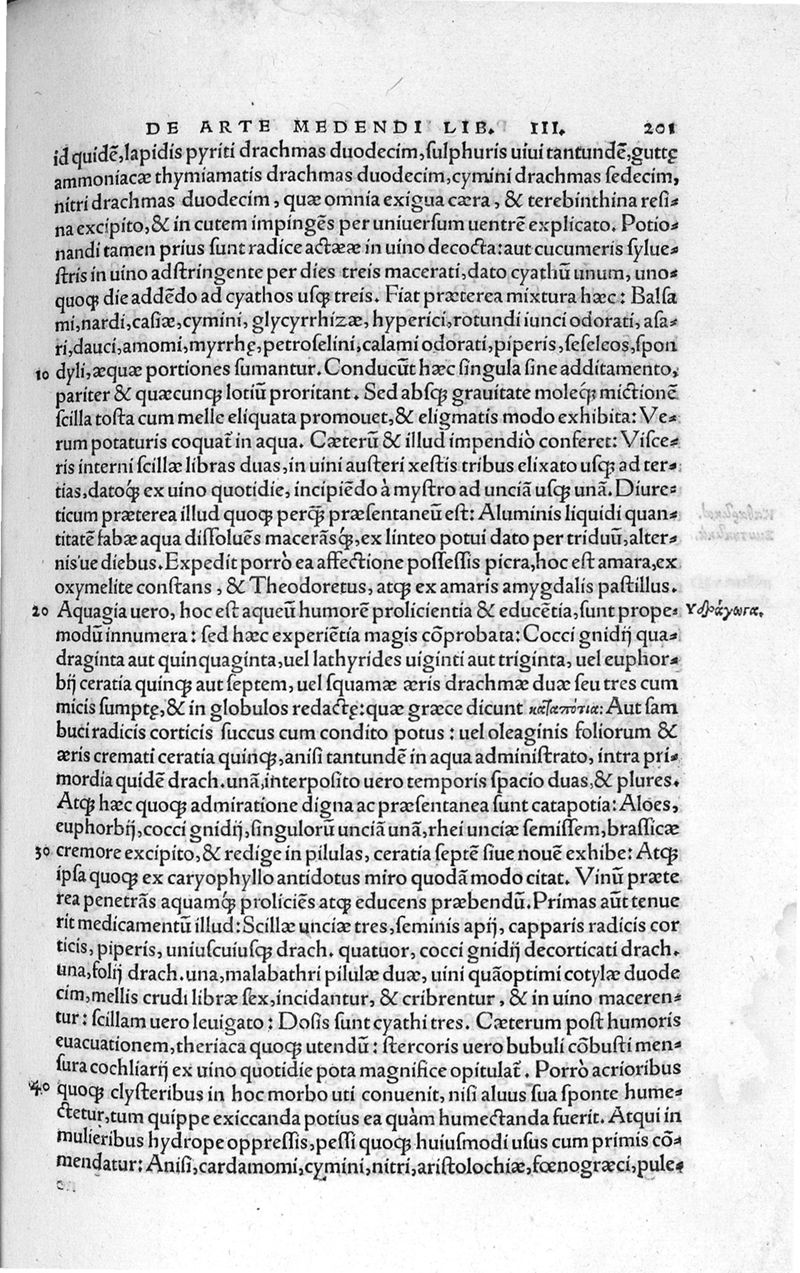 DE ARTE MEDENDI LIB. III. 201
id quidē, lapidis pyriti drachmas duodecim, sulphuris uiui tantundē, guttę
ammoniacæ thymiamatis drachmas duodecim, cymini drachmas sedecim,
nitri drachmas duodecim, quæ omnia exigua cæra, & terebinthina resi⸗
na excipito, & in cutem impingēs per uniuersum uentrē explicato. Potio⸗
nandi tamen prius sunt radice actææ in uino decocta: aut cucumeris sylue⸗
stris in uino adstringente per dies treis macerati, dato cyathū unum, uno⸗
quoqꝫ die addēdo ad cyathos usqꝫ treis. Fiat præterea mixtura hæc: Balsa
mi, nardi, casiæ, cymini, glycyrrhizæ, hyperici, rotundi iunci odorati, asa⸗
ri, dauci, amomi, myrrhę, petroselini, calami odorati, piperis, seseleos, spon
10 dyli, æquæ portiones sumantur. Conducūt hæc singula sine additamento,
pariter & quæcunqꝫ lotiū proritant. Sed absqꝫ grauitate moleqꝫ́ mictionē
scilla tosta cum melle eliquata promouet, & eligmatis modo exhibita: Ve⸗
rum potaturis coquat̃ in aqua. Cæterū & illud impendiò conferet: Visce⸗
ris interni scillæ libras duas, in uini austeri xestis tribus elixato usqꝫ ad ter⸗
tias, datoqꝫ́ ex uino quotidie, incipiēdo à mystro ad unciā usqꝫ unā. Diure⸗
ticum præterea illud quoqꝫ perqꝫ̃ præsentaneū est: Aluminis liquidi quan⸗
titatē fabæ aqua dissoluēs macerāsqꝫ́, ex linteo potui dato per triduū, alter⸗
nis'ue diebus. Expedit porrò ea affectione possessis picra, hoc est amara, ex
oxymelite constans, & Theodoretus, atqꝫ ex amaris amygdalis pastillus.
20 Aquagia uero, hoc est aqueū humorē prolicientia & educētia, sunt prope⸗ Ὑδράγωγα.
modū innumera: sed hæc experiētia magis cōprobata: Cocci gnidij qua⸗
draginta aut quinquaginta, uel lathyrides uiginti aut triginta, uel euphor⸗
bij ceratia quinqꝫ aut septem, uel squamæ æris drachmæ duæ seu tres cum
micis sumptę, & in globulos redactę: quæ græce dicunt καταπότια: Aut sam
buci radicis corticis succus cum condito potus: uel oleaginis foliorum &
æris cremati ceratia quinqꝫ, anisi tantundē in aqua administrato, intra pri⸗
mordia quidē drach. unā, interposito uero temporis spacio duas, & plures.
Atqꝫ hæc quoqꝫ admiratione digna ac præsentanea sunt catapotia: Aloes,
euphorbij, cocci gnidij, singulorū unciā unā, rhei unciæ semissem, brassicæ
30 cremore excipito, & redige in pilulas, ceratia septē siue nouē exhibe: Atqꝫ
ipsa quoqꝫ ex caryophyllo antidotus miro quodā modo citat. Vinū præte
rea penetrās aquamqꝫ́ proliciēs atqꝫ educens præbendū. Primas aūt tenue
rit medicamentū illud: Scillæ unciæ tres, seminis apij, capparis radicis cor
ticis, piperis, uniuscuiusqꝫ drach. quatuor, cocci gnidij decorticati drach.
una, folij drach. una, malabathri pilulæ duæ, uini quāoptimi cotylæ duode
cim, mellis crudi libræ sex, incidantur, & cribrentur, & in uino maceren⸗
tur: scillam uero leuigato: Dosis sunt cyathi tres. Cæterum post humoris
euacuationem, theriaca quoqꝫ utendū: stercoris uero bubuli cōbusti men⸗
sura cochliarij ex uino quotidie pota magnifice opitulat̃. Porrò acrioribus
40 quoqꝫ clysteribus in hoc morbo uti conuenit, nisi aluus sua sponte hume⸗
ctetur, tum quippe exiccanda potius ea quàm humectanda fuerit. Atqui in
mulieribus hydrope oppressis, pessi quoqꝫ huiusmodi usus cum primis cō⸗
mendatur: Anisi, cardamomi, cymini, nitri, aristolochiæ, fœnogræci, pule⸗